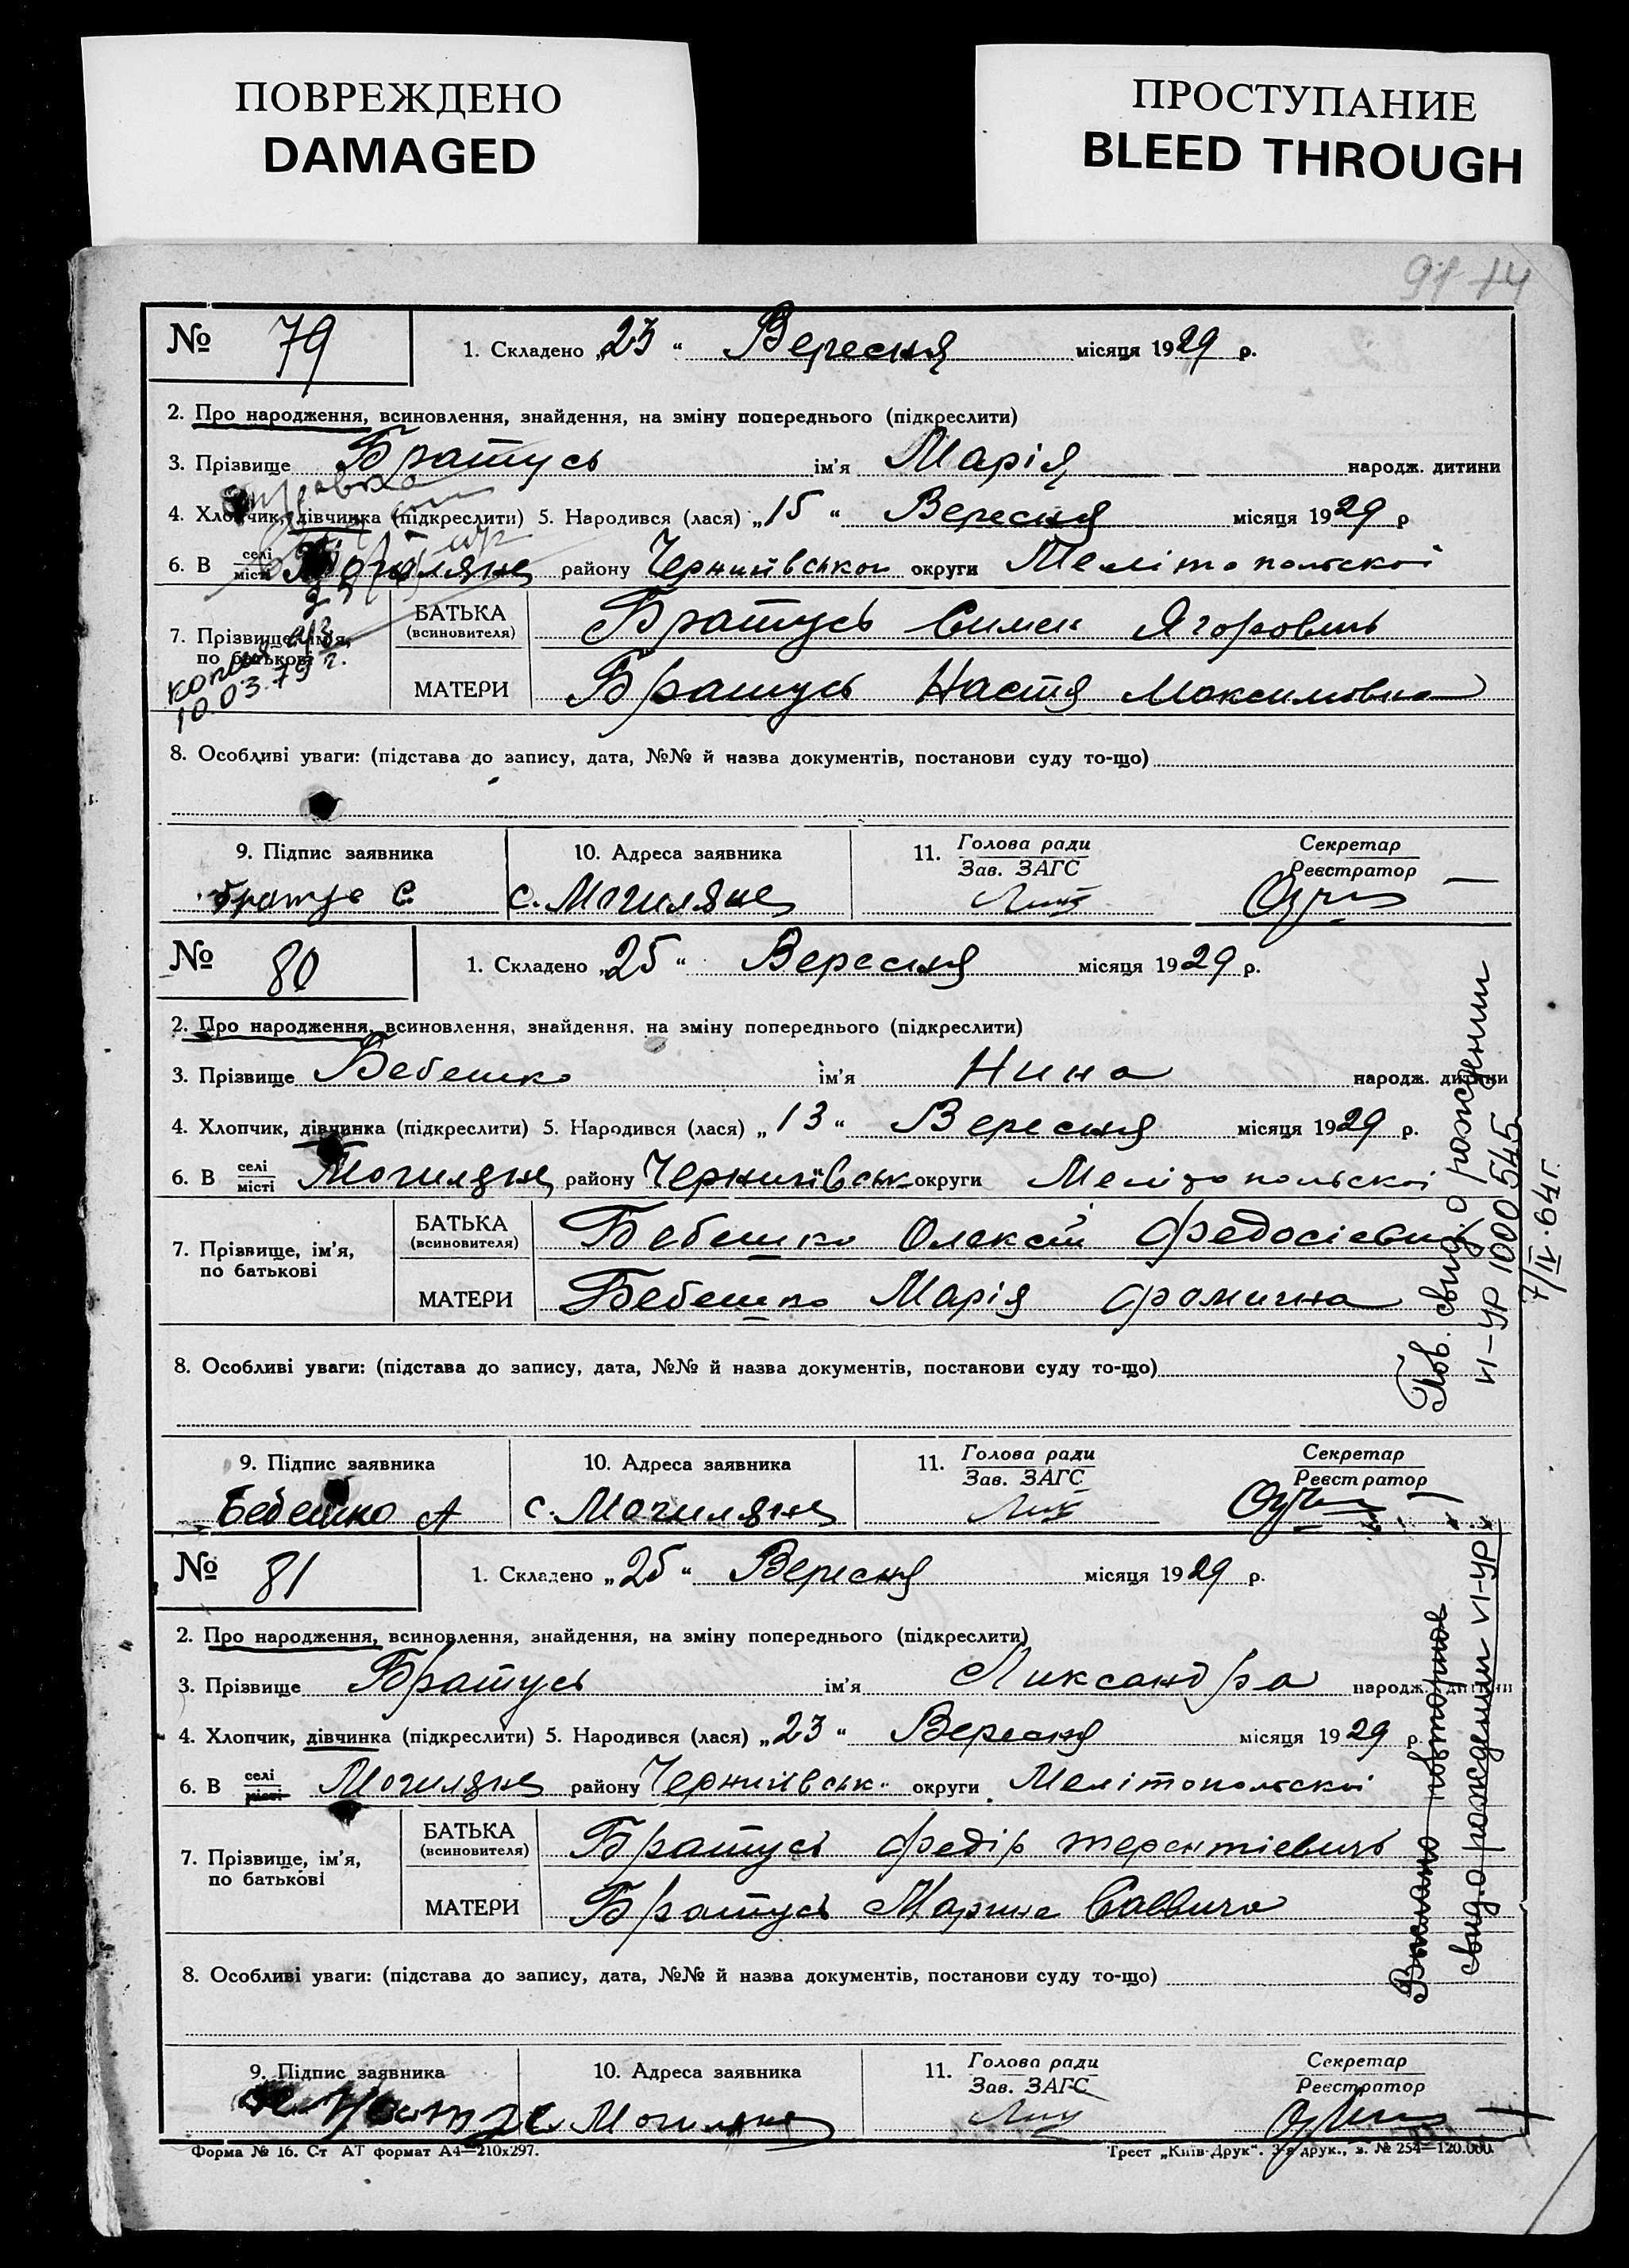 ПОВРЕЖДЕНО
DAMAGED
ПРОСТУПАНИЕ
BLEED THROUGH
91 74
№ 79
1. Складено „23“ Вересня місяця 1929 р.
2. Про народження, всиновлення, знайдення, на зміну попереднього (підкреслити)
3. Прізвище Братусь ім'я Марія народж. дитини
4. Хлопчик, дівчинка (підкреслити) 5. Народився (лася) „15“ Вересня місяця 1929 р
6. В селі місті Могиляне району Чернигівської округи Мелітопольскої
7. Прізвище, ім'я, по батькові
БАТЬКА (всиновителя) Братусь Симен Ягоровичь
МАТЕРИ Братусь Настя Максимовна
копия а/з
10.03.79 г.
8. Особливі уваги: (підстава до запису, дата, №№ й назва документів, постанови суду то-що)
9. Підпис заявника
10. Адреса заявника
11. Голова ради Зав. ЗАГС
Секретар Реєстратор
Братусь С. с. Могиляне
№ 80
1. Складено „25“ Вересня місяця 1929 р.
2. Про народження, всиновлення, знайдення, на зміну попереднього (підкреслити)
3. Прізвище Бебешко ім'я Нина народж. дитини
4. Хлопчик, дівчинка (підкреслити) 5. Народився (лася) „13“ Вересня місяця 1929 р.
6. В селі місті Могиляне району Чернигівськ округи Мелітопольскої
7. Прізвище, ім'я, по батькові
БАТЬКА (всиновителя) Бебешко Олексій Федосієвич
МАТЕРИ Бебешко Марія Фомична
8. Особливі уваги: (підстава до запису, дата, №№ й назва документів, постанови суду то-що)
Пов. свид. о рождении
VI-УР 1000545
7/IV.64г.
9. Підпис заявника
10. Адреса заявника
11. Голова ради Зав. ЗАГС
Секретар Реєстратор
Бебешко А с. Могиляне
№ 81
1. Складено „25“ Вересня місяця 1929 р.
2. Про народження, всиновлення, знайдення, на зміну попереднього (підкреслити)
3. Прізвище Братусь ім'я Ликсандра народж. дитини
4. Хлопчик, дівчинка (підкреслити) 5. Народився (лася) „23“ Вересня місяця 1929 р.
6. В селі місті Могиляне району Чернигівськ. округи Мелітопольскої
7. Прізвище, ім'я, по батькові
БАТЬКА (всиновителя) Братусь Федір Терентієвичь
МАТЕРИ Братусь Марина Саввична
8. Особливі уваги: (підстава до запису, дата, №№ й назва документів, постанови суду то-що)
Выслано повторное
свид. о рождении VI-УР
9. Підпис заявника
10. Адреса заявника
11. Голова ради Зав. ЗАГС
Секретар Реєстратор
Могиляне
Форма № 16. Ст АТ формат А4—210x297.
Трест „Київ-Друк“. 3-я друк., з. № 254—120.000.